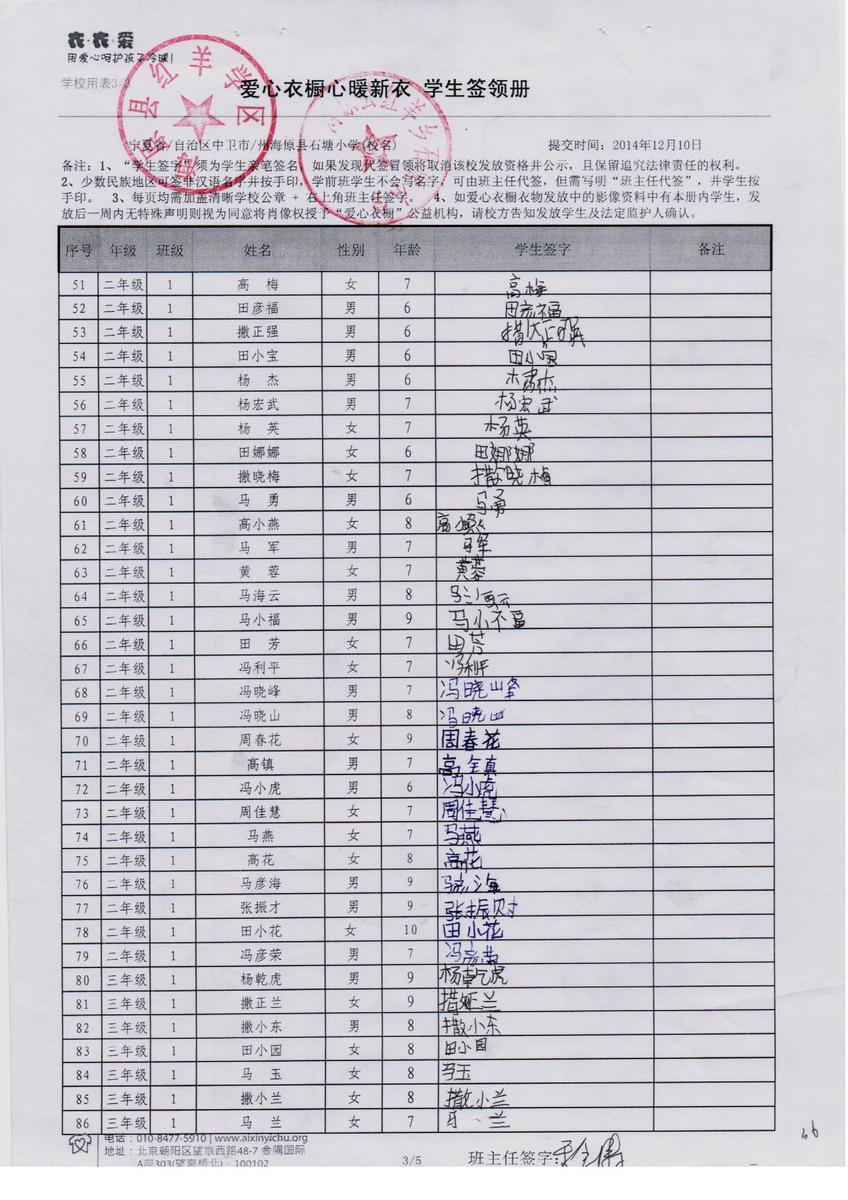 衣·衣·爱
用爱心呵护孩子冷暖!
学校用表3/3
爱心衣橱心暖新衣 学生签领册
宁夏省/自治区中卫市/州海原县石塘小学(校名) 提交时间:2014年12月10日
备注:1、“学生签字”须为学生亲笔签名,如果发现代签冒领将取消该校发放资格并公示,且保留追究法律责任的权利。
2、少数民族地区可签非汉语名字并按手印,学前班学生不会写名字,可由班主任代签,但需写明“班主任代签”,并学生按
手印。 3、每页均需加盖清晰学校公章 + 右上角班主任签字。 4、如爱心衣橱衣物发放中的影像资料中有本册内学生,发
放后一周内无特殊声明则视为同意将肖像权授予“爱心衣橱”公益机构,请校方告知发放学生及法定监护人确认。
序号 年级 班级 姓名 性别 年龄 学生签字 备注
51 二年级 1 高 梅 女 7 高梅
52 二年级 1 田彦福 男 6 田彦福
53 二年级 1 撒正强 男 6
54 二年级 1 田小宝 男 6 田小宝
55 二年级 1 杨 杰 男 6
56 二年级 1 杨宏武 男 7 杨宏武
57 二年级 1 杨 英 女 7 杨英
58 二年级 1 田娜娜 女 6 田娜娜
59 二年级 1 撒晓梅 女 7 撒晓梅
60 二年级 1 马 勇 男 6 马勇
61 二年级 1 高小燕 女 8
62 二年级 1 马 军 男 7 马军
63 二年级 1 黄 蓉 女 7 黄蓉
64 二年级 1 马海云 男 8
65 二年级 1 马小福 男 9 马小福
66 二年级 1 田 芳 女 7 田芳
67 二年级 1 冯利平 女 7 冯利平
68 二年级 1 冯晓峰 男 7 冯晓峰
69 二年级 1 冯晓山 男 8 冯晓山
70 二年级 1 周春花 女 9 周春花
71 二年级 1 高镇 男 7 高镇
72 二年级 1 冯小虎 男 6 冯小虎
73 二年级 1 周佳慧 女 7 周佳慧
74 二年级 1 马燕 女 7 马燕
75 二年级 1 高花 女 8 高花
76 二年级 1 马彦海 男 9 马彦海
77 二年级 1 张振才 男 9 张振财
78 二年级 1 田小花 女 10 田小花
79 二年级 1 冯彦荣 男 7 冯彦荣
80 三年级 1 杨乾虎 男 9 杨乾虎
81 三年级 1 撒正兰 女 9
82 三年级 1 撒小东 男 8 撒小东
83 三年级 1 田小园 女 8 田小园
84 三年级 1 马 玉 女 8 马玉
85 三年级 1 撒小兰 女 8 撒小兰
86 三年级 1 马 兰 女 7
电话:010-8477-5910 | www.aixinyichu.org
地址:北京朝阳区望京西路48-7 金隅国际
A座303(望京桥北)· 100102
3/5 班主任签字: